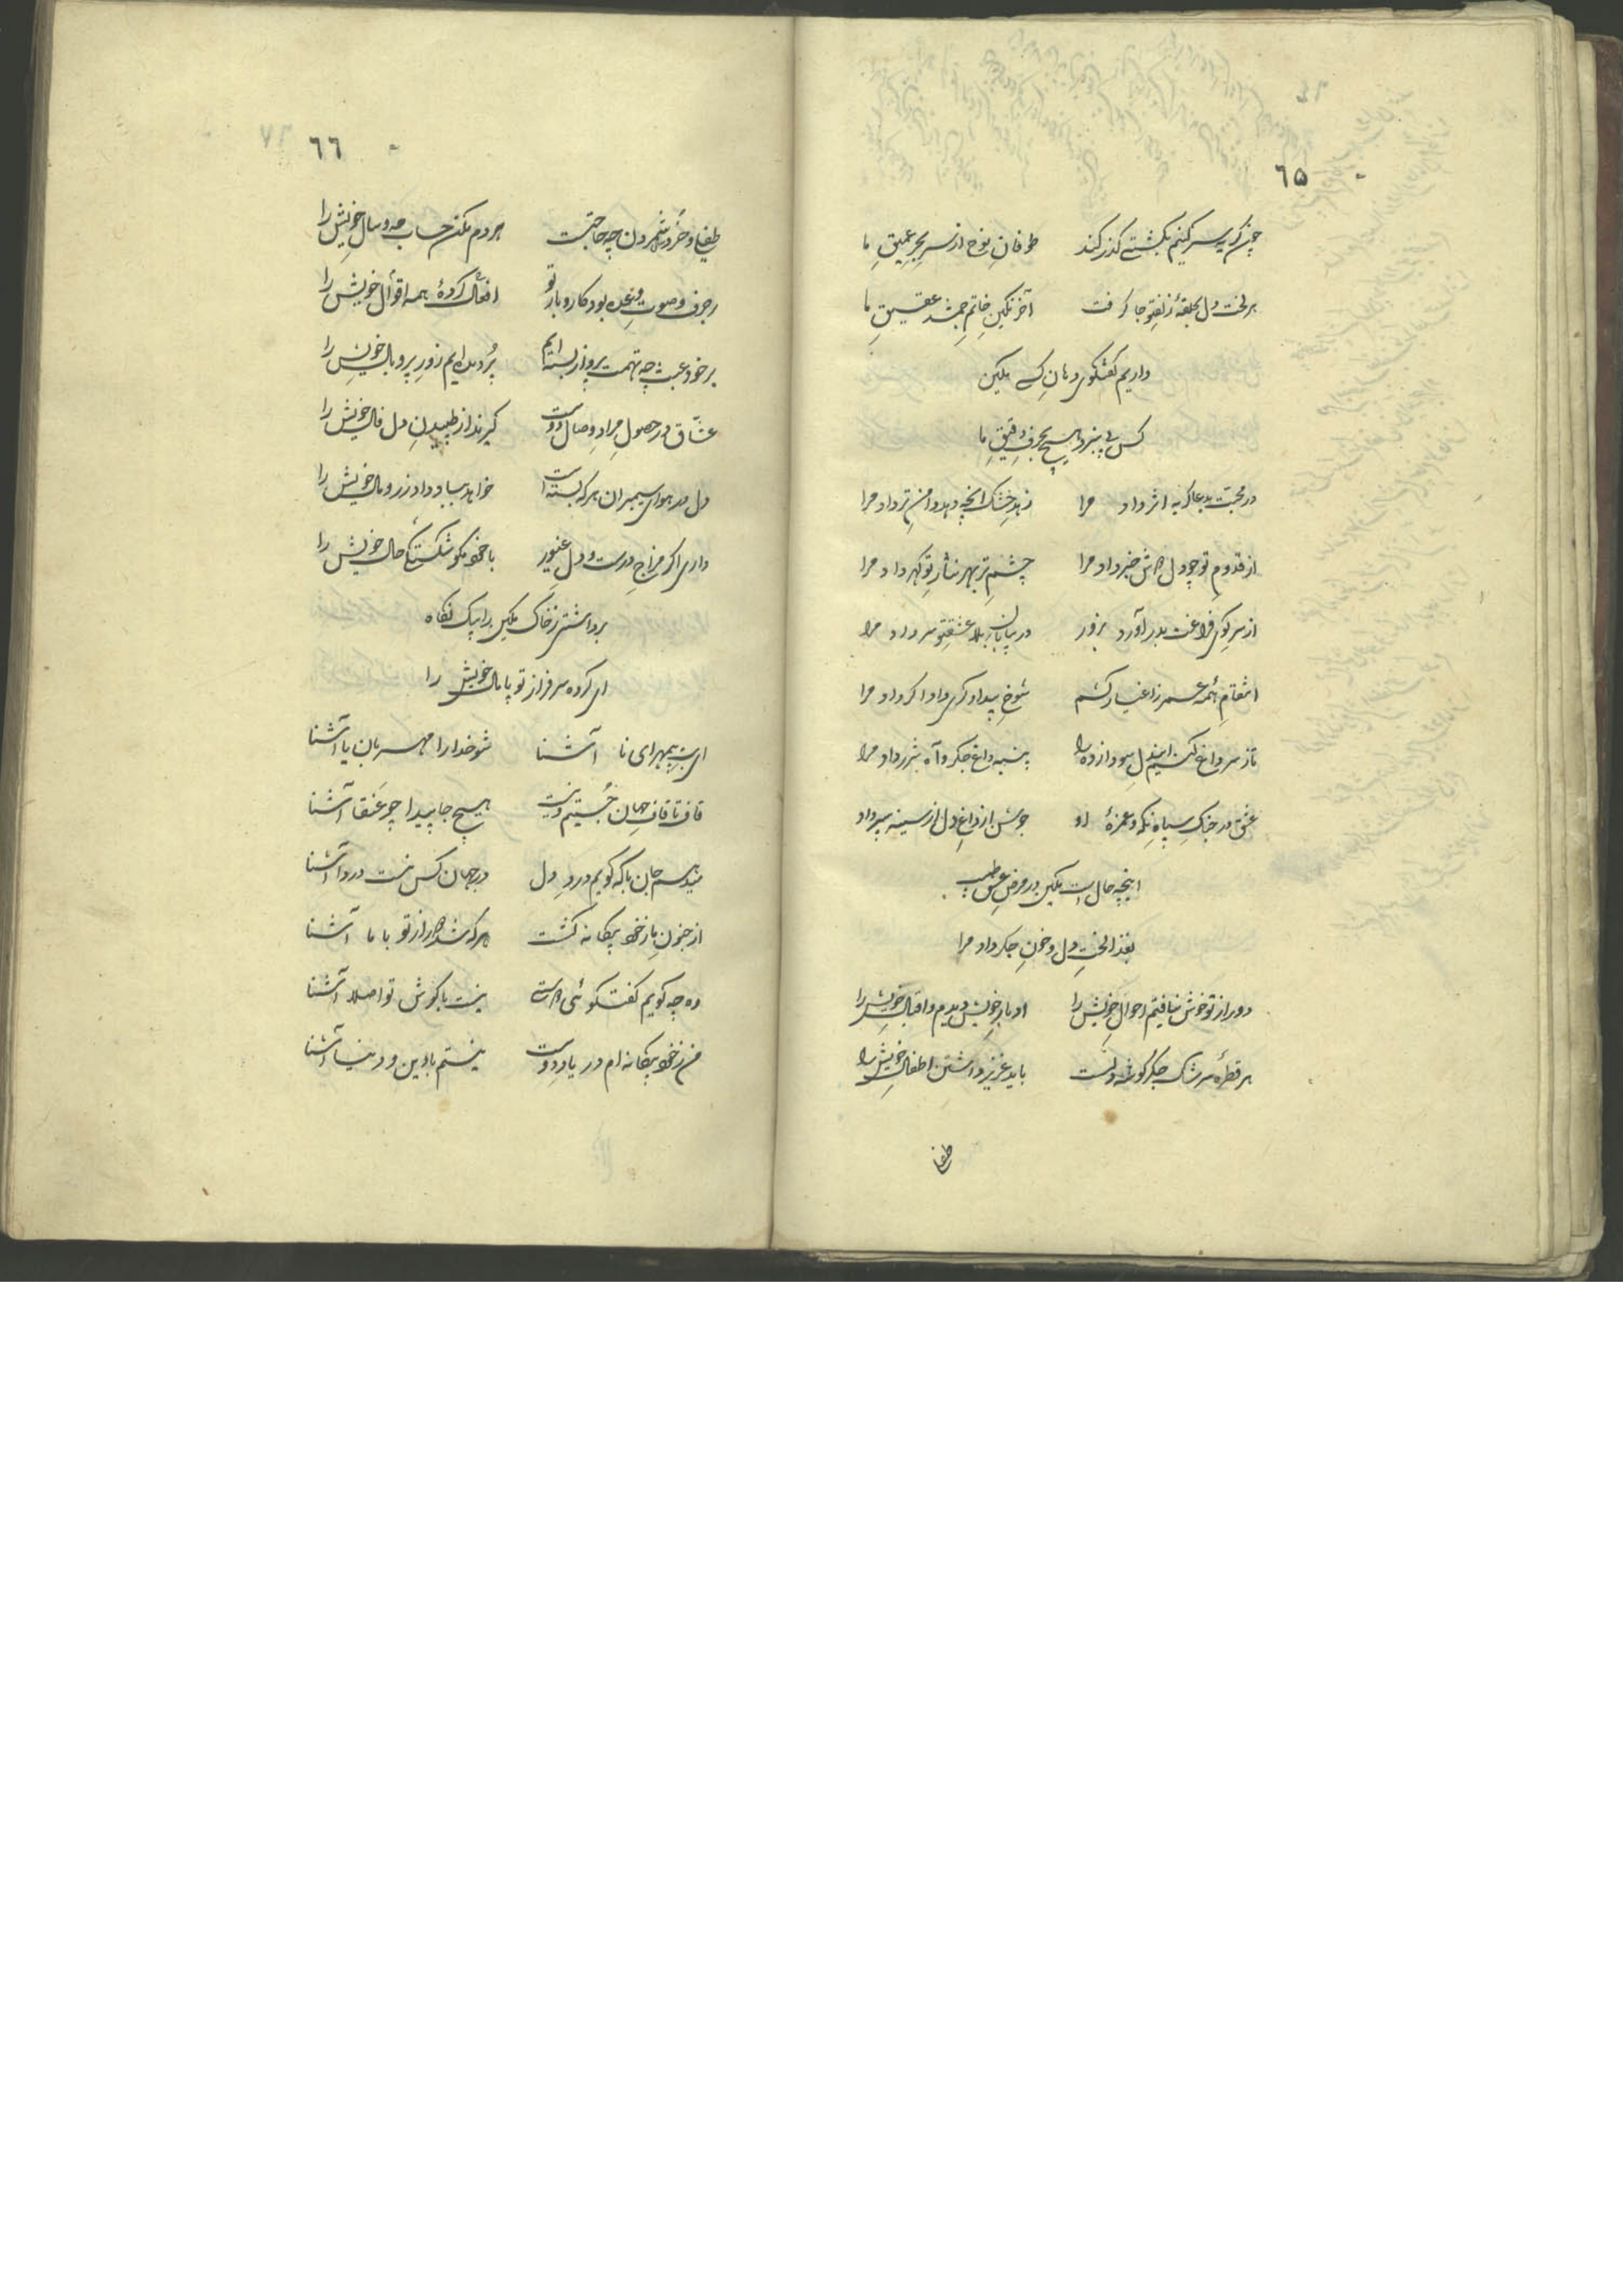 ٦٥
چون گریه سر کنیم بکشتے گذر کند طوفانِ نوح از سرِ بحرِ عمیقِ ما
هر لخت دل بحلقهٔ زلفِ تو جا گرفت آخر نگینِ خاتمِ جمشد عقیقِ ما
داریم گفتگوی دهانِ کسے مکین
کس پے نبرد هیچ بحرفِ دقیقِ ما
در محبت بدعا گریه اثر داد مرا زهدِ خشک انچه دهد دامنِ تر داد مرا
از قدومِ تو چو دل مژده خبر داد مرا چشمِ تر بهر نثارِ تو گهر داد مرا
از سرِ کوی فراغت بدر آورد بزور در بیابانِ بلا عشقِ تو سر داد مرا
انتقامِ همه عمر ز اغیار کشم شوخِ بیدادگری داد اگر داد مرا
تازه سر داغ کنیم این دلِ سودازده را پنبه داغِ جگر و آه شرر داد مرا
عشق در جنگِ سپاهِ نگه و غمزهٔ او جوشن از داغِ دل از سینه سپر داد
اینچه حال است مکین در مرضِ عشق طبیب
بغذا لختِ دل و خونِ جگر داد مرا
دور از تو خوش نیافتم احوالِ خویش را ادبارِ خویش دیدم و اقبالِ خویش را
هر قطرهٔ سرشک جگر گوشهٔ دلست باید عزیز داشتن اطفالِ خویش را
طفلی
٦٦
طفلی و خُرد شمردن چه حاجتست هر دم مکن حساب مه و سالِ خویش را
بر حرف و صوت وعده بود کار و بارِ تو افعال کردهٔ همه اقوالِ خویش را
بر خود عبث چه تهمت پرواز بسته ایم پُر دیده ایم زورِ پر و بالِ خویش را
عشّاق در حصولِ مرادِ وصالِ دوست گیرند از طپیدنِ دل فالِ خویش را
دل در هوای سیمبران هر که بسته است خواهد بباد داد زر و مالِ خویش را
داری اگر مزاجِ درست و دل غیور با خود مگو شکستگی حالِ خویش را
برداشتی ز خاک مکین را بیک نگاه
ای کرده سرفراز تو پامالِ خویش را
ای بت بیمهر ای نا آشنا شو خدا را مهربان یا آشنا
قاف تا قافِ جهان جُستیم و نیست هیچ جا پیدا چو عَنقا آشنا
میدهم جان با که گویم دردِ دل در جهان کس نیست دردا آشنا
از جنون باز خود بیگانه گشت هر که شد از تو با ما آشنا
ده چه گویم گفتگوئی نیست با گوش تو اصلا آشنا
من ز خود بیگانه ام در یادِ دوست نیستم با دین و دنیا آشنا